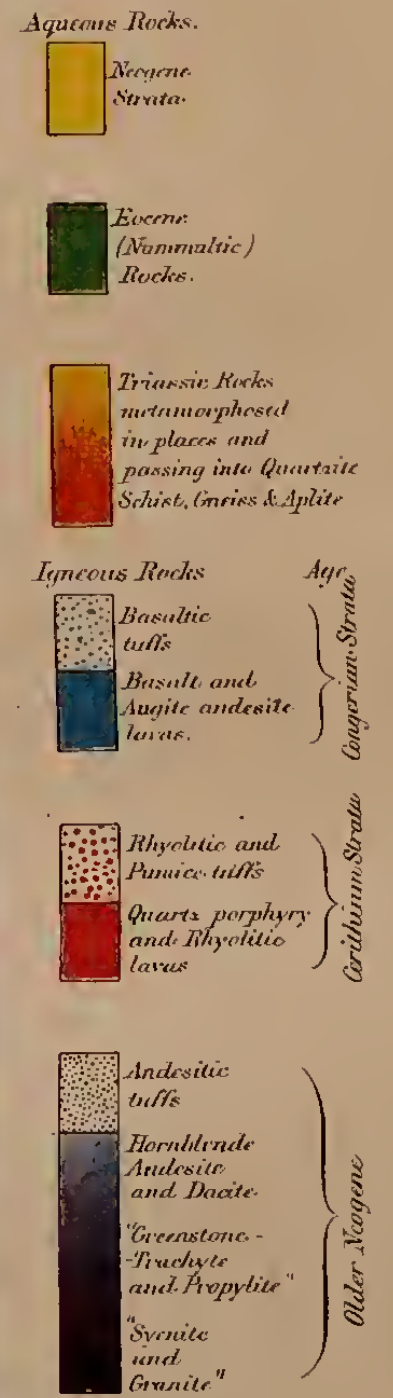 Aqueous Rocks.
Neogene
Strata.
Eocene
(Nummultic)
Rocks.
Triassic Rocks
metamorphosed
in places and
passing into Quartzite
Schist, Gneiss & Aplite
Igneous Rocks
Age
Basaltic
tuffs
Basalt and
Augite andesite
lavas.
Congerian Strata
Rhyolitic and
Pumice tuffs
Quartz porphyry
and Rhyolitic
lavas
Cerithium Strata
Andesitic
tuffs
Hornblende
Andesite
and Dacite
"Greenstone-
-Trachyte
and Propylite"
"Syenite
and
Granite"
Older Neogene